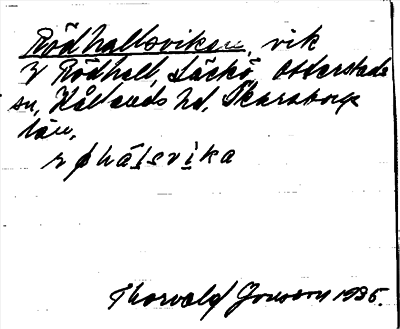 Rödhallsviken, vik
Rödhall, Läckö, Otterstads
sn, Kållands hd, Skaraborgs
län,
Thorvald Jonsson 1935.